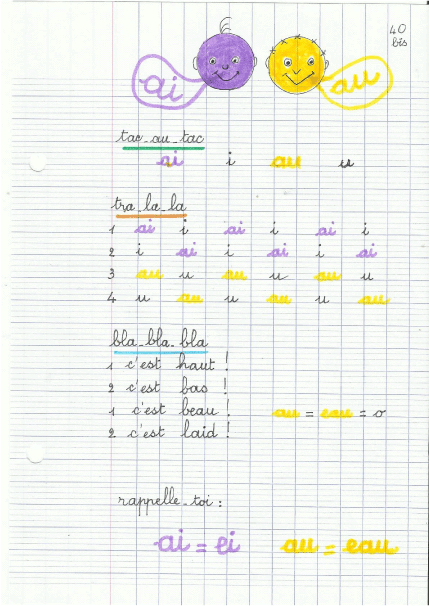 40
bis
ai
au
tac-au-tac
ai i au u
tra-la-la
1 ai i ai i ai i
2 i ai i ai i ai
3 au u au u au u
4 u au u au u au
bla-bla-bla
1 c'est haut !
2 c'est bas !
1 c'est beau ! au = eau = o
2 c'est laid !
rappelle-toi :
ai = ei au = eau